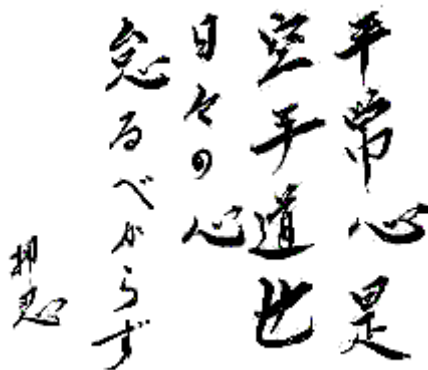 平常心是
空手道也
日々の心
怠るべからず
押忍